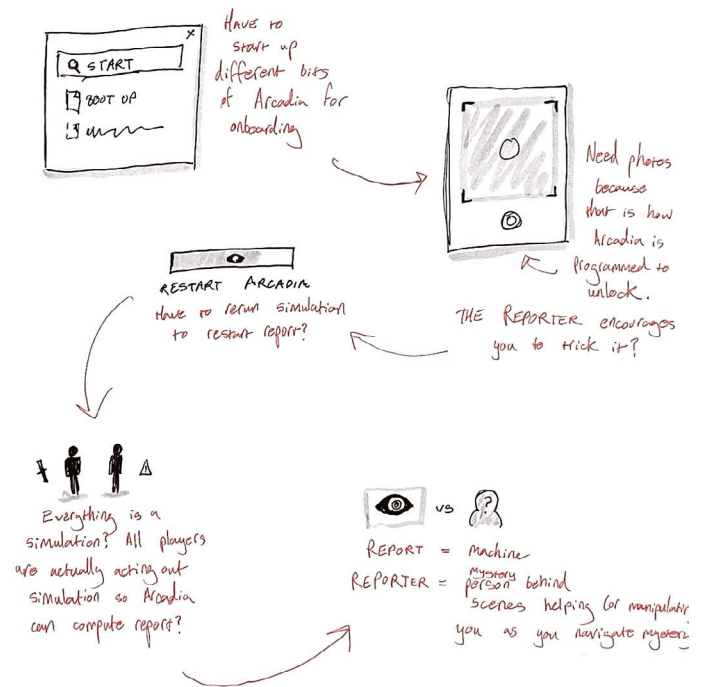 x
START
BOOT UP
HAVE TO
start up
different bits
of Arcadia for
onboarding
Need photos
because
that is how
Arcadia is
programmed to
unlock.
THE REPORTER encourages
you to trick it?
RESTART ARCADIA
Have to rerun simulation
to restart report?
Everything is a
simulation? All players
are actually acting out
simulation so Arcadia
can compute report?
vs ?
REPORT = machine
mystery
REPORTER = person behind
scenes helping (or manipulatin
you as you navigate mystery